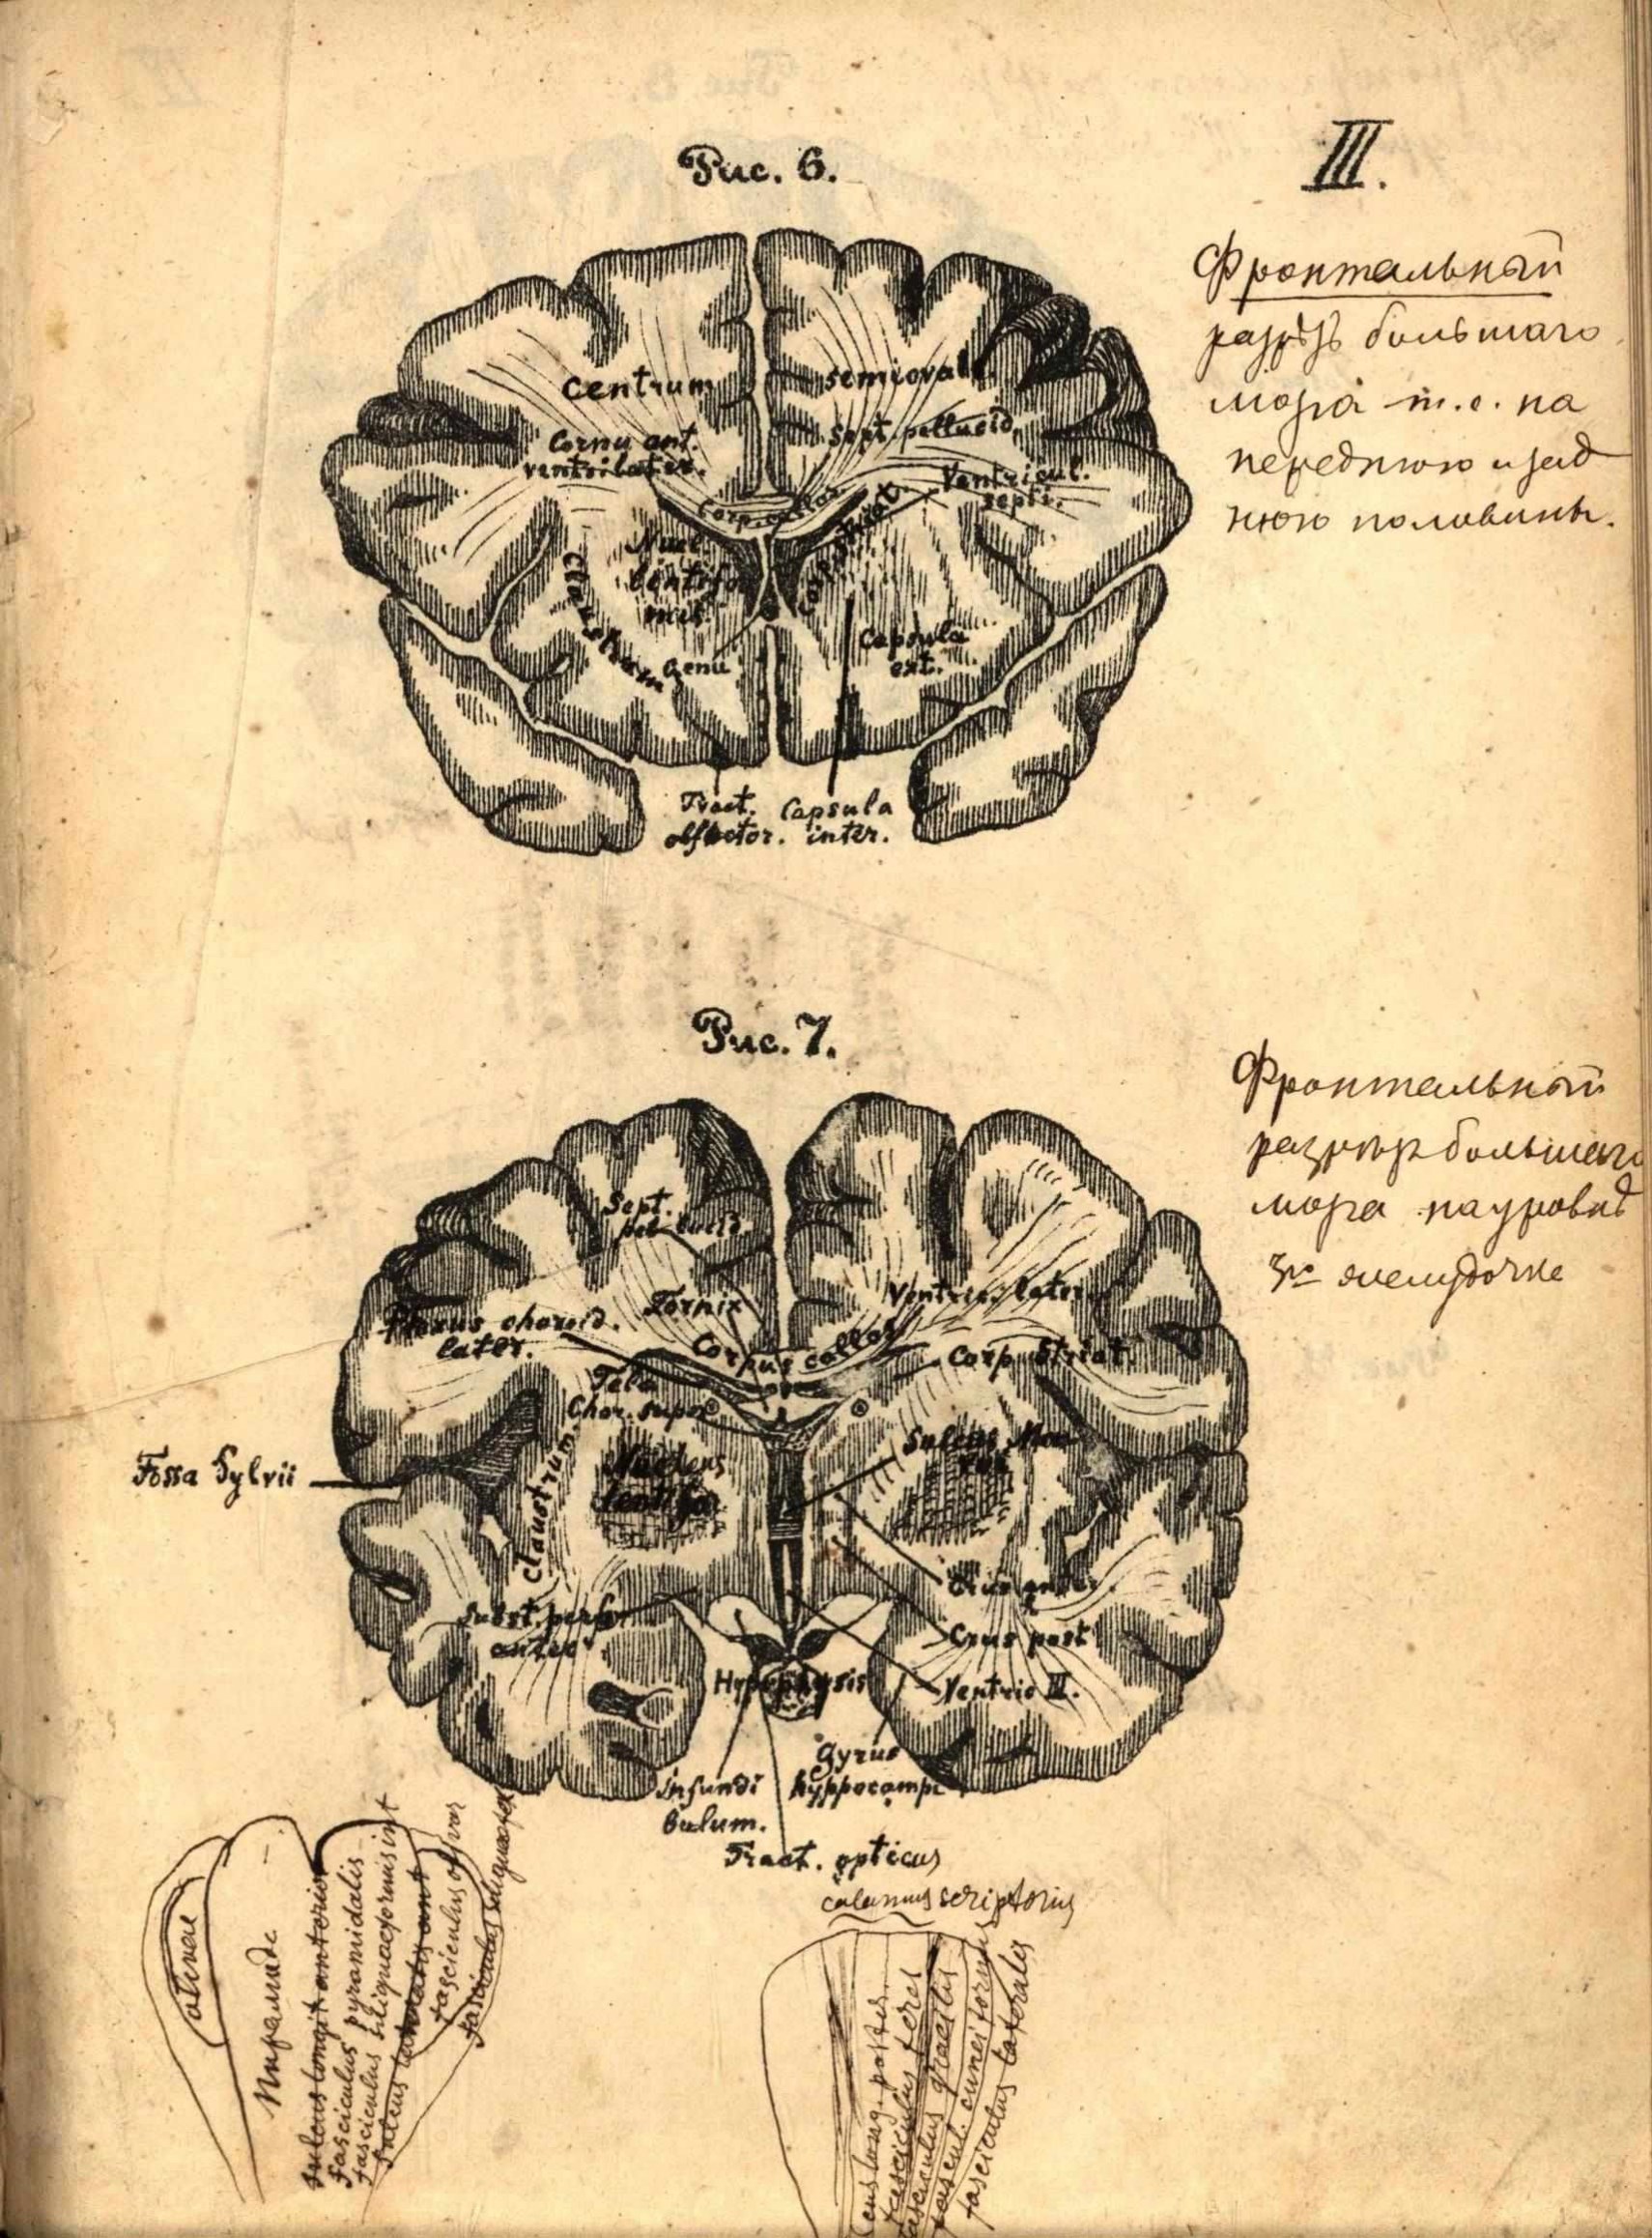 III.
Рис. 6.
Фронтальный
разрѣзъ большаго
мозга т.е. на
переднюю и зад
нюю половины.
Centrum
semiovale
Cornu ant.
ventri later.
Sept. pellucid.
Ventricul.
septi.
Corp. callos
Corp. striat.
Nucl.
lentifor
mis.
Claustrum
Genu
Capsula
ext.
Tract.
olfactor.
Capsula
inter.
Рис. 7.
Фронтальный
разрѣзъ большаго
мозга на уровнѣ
3го желудочка
Sept.
pellucid.
Fornix
Ventric. later.
Plexus choroid.
later.
Corpus callos
Corp. striat.
Tela
Chor. super.
Sulcus Mon
roi
Fossa Sylvii
Claustrum
Nucleus
lentifor
Crus anter.
Subst. perfor
anter
Crus post
Hypophysis
Ventric III.
Gyrus
hyppocampi
Infundi
bulum.
Tract. opticus
calamus scriptorius
olivae
Пирамиде
sulcus longit anterior
fasciculus pyramidalis
fasciculus siliquaeformis int
sulcus lateralis ant
fasciculus olivar
fasciculus siliquaef ex
long. poster.
fasciculus teres
fasciculus gracilis
fascicul. cuneiformis
fasciculus lateralis